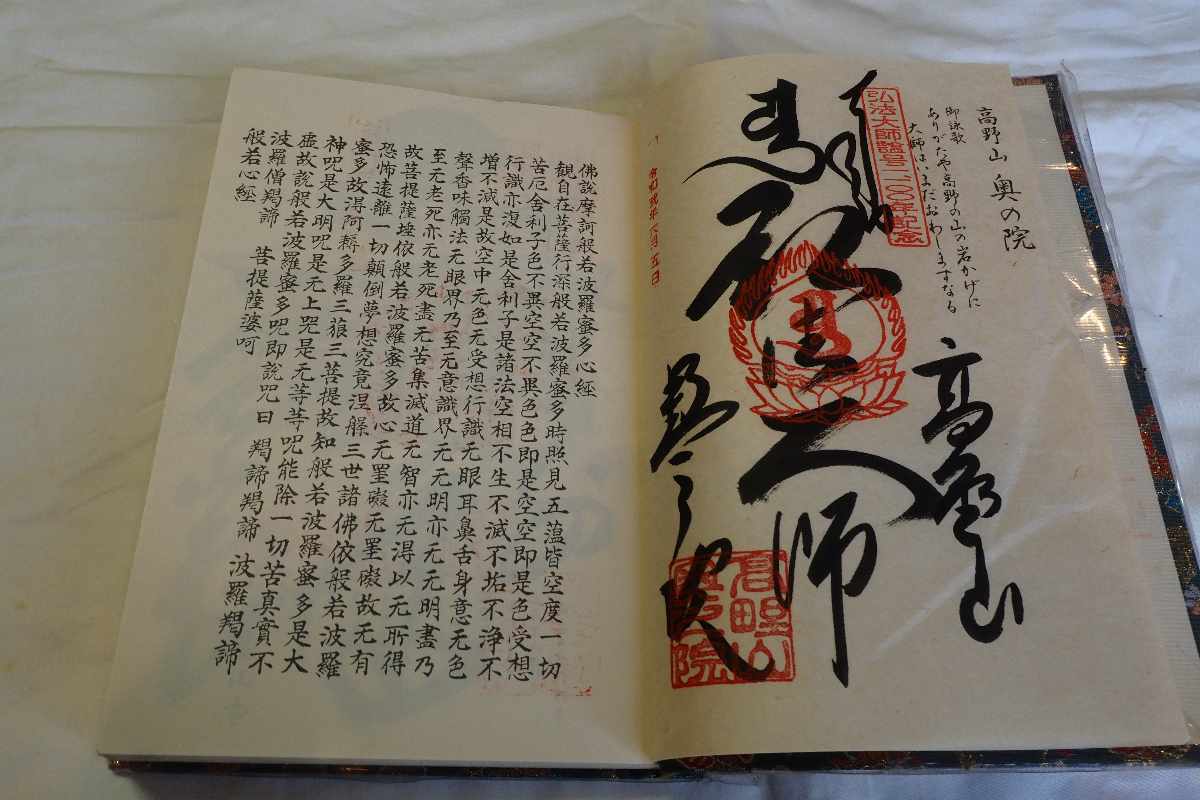 高野山 奥の院
御詠歌
ありがたや高野の山の岩かげに
大師はいまだおわしますなる
高野山
弘法大師諡号一一〇〇年記念
大師
高野山
奥之院
佛說摩訶般若波羅蜜多心經
観自在菩薩行深般若波羅蜜多時照見五蘊皆空度一切
苦厄舍利子色不異空空不異色色即是空空即是色受想
行識亦復如是舍利子是諸法空相不生不滅不垢不淨不
增不減是故空中无色无受想行識无眼耳鼻舌身意无色
聲香味觸法无眼界乃至无意識界无无明亦无无明盡乃
至无老死亦无老死盡无苦集滅道无智亦无得以无所得
故菩提薩埵依般若波羅蜜多故心无罣礙无罣礙故无有
恐怖遠離一切顛倒夢想究竟涅槃三世諸佛依般若波羅
蜜多故得阿耨多羅三藐三菩提故知般若波羅蜜多是大
神呪是大明呪是无上呪是无等等呪能除一切苦真實不
虛故說般若波羅蜜多呪即說呪曰 羯諦羯諦 波羅羯諦
波羅僧羯諦 菩提薩婆呵
般若心經